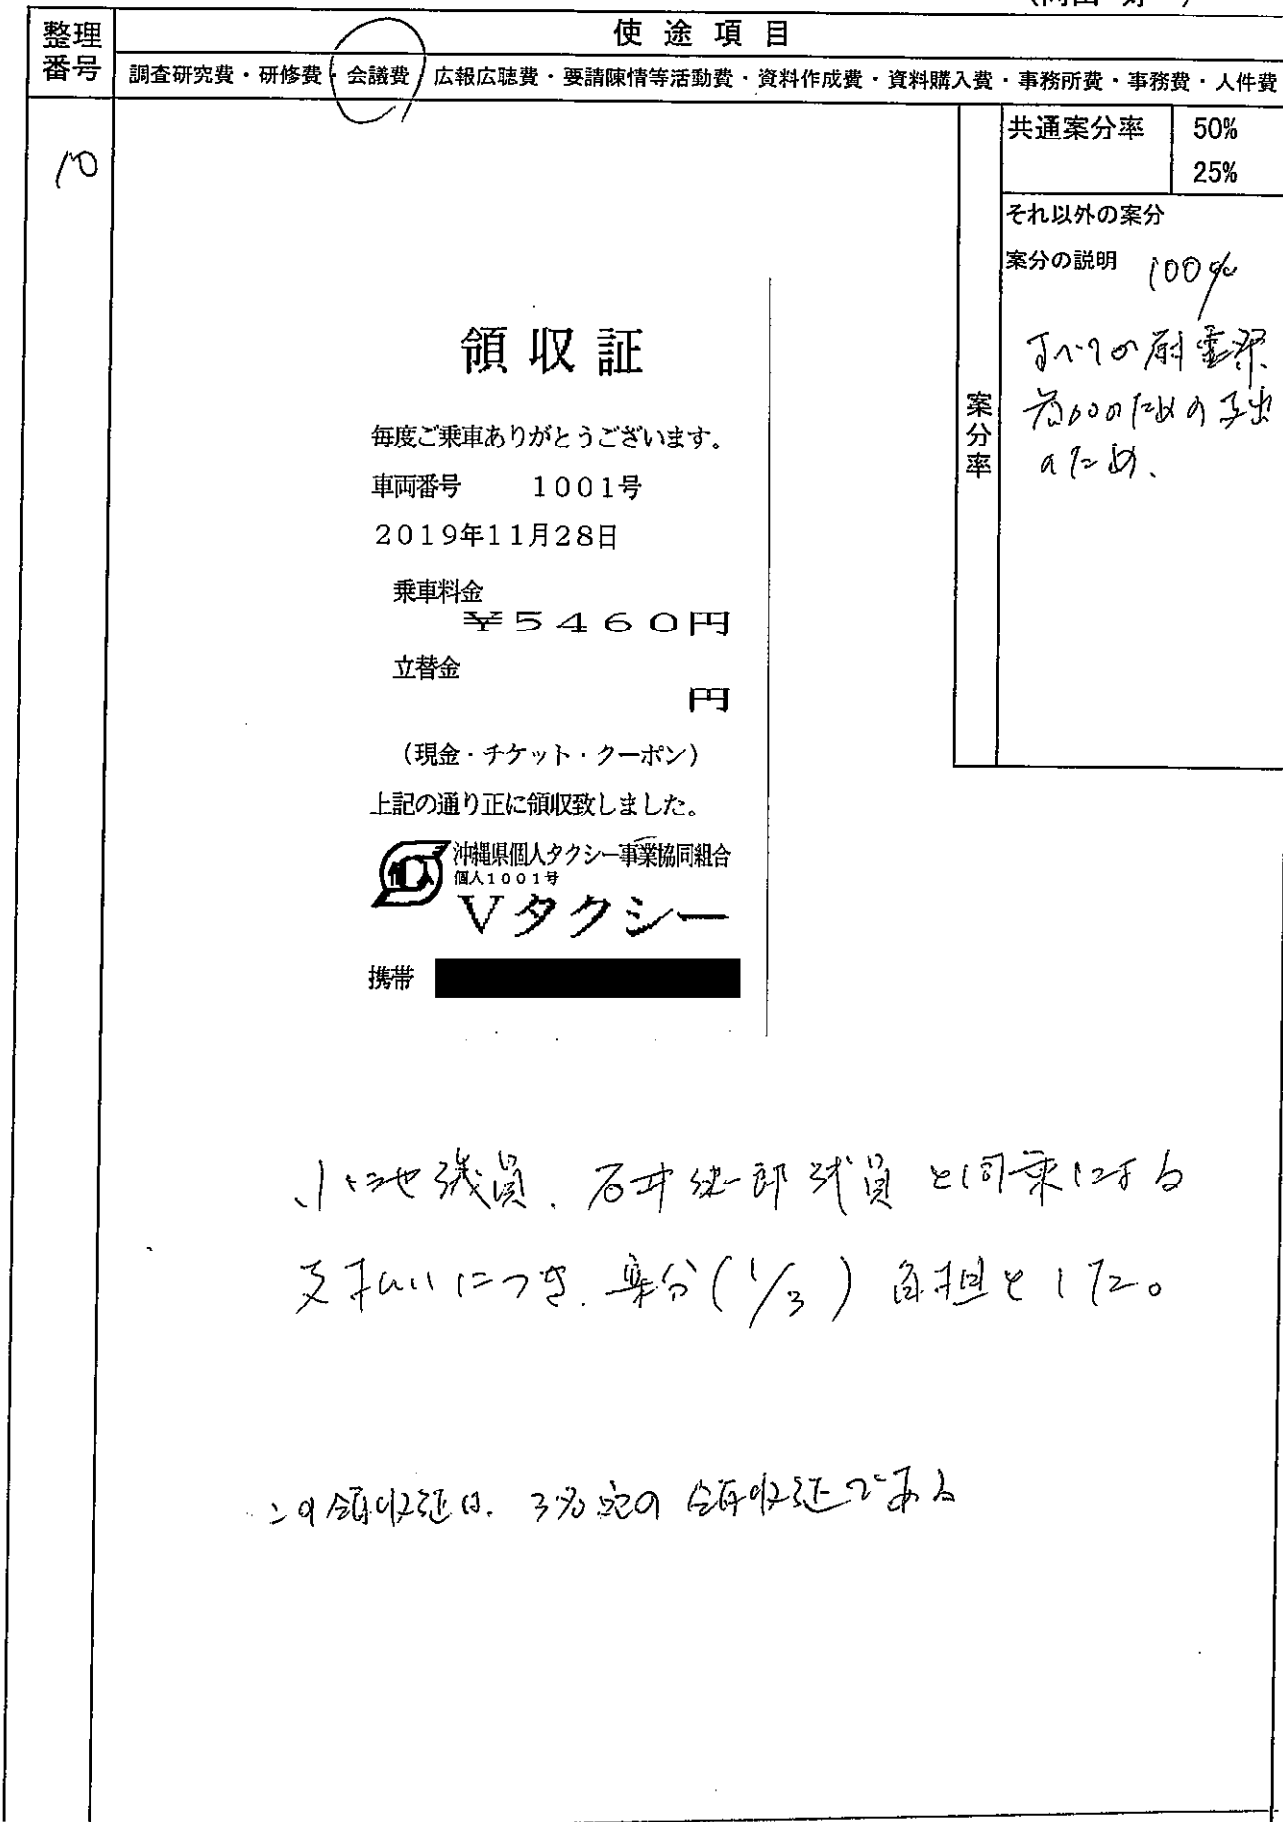 整理番号
使途項目
調査研究費・研修費・会議費・広報広聴費・要請陳情等活動費・資料作成費・資料購入費・事務所費・事務費・人件費
10
共通案分率 50%
25%
それ以外の案分
案分の説明 100%
すべて
のための支出
のため、
案分率
領収証
毎度ご乗車ありがとうございます。
車両番号 1001号
2019年11月28日
乗車料金
¥5460円
立替金
円
(現金・チケット・クーポン)
上記の通り正に領収致しました。
個人
沖縄県個人タクシー事業協同組合
個人1001号
Vタクシー
携帯
小池議員、石井 議員と同乗による
支払いにつき、案分(1/3)負担とした。
この領収証は、3名宛の領収証である